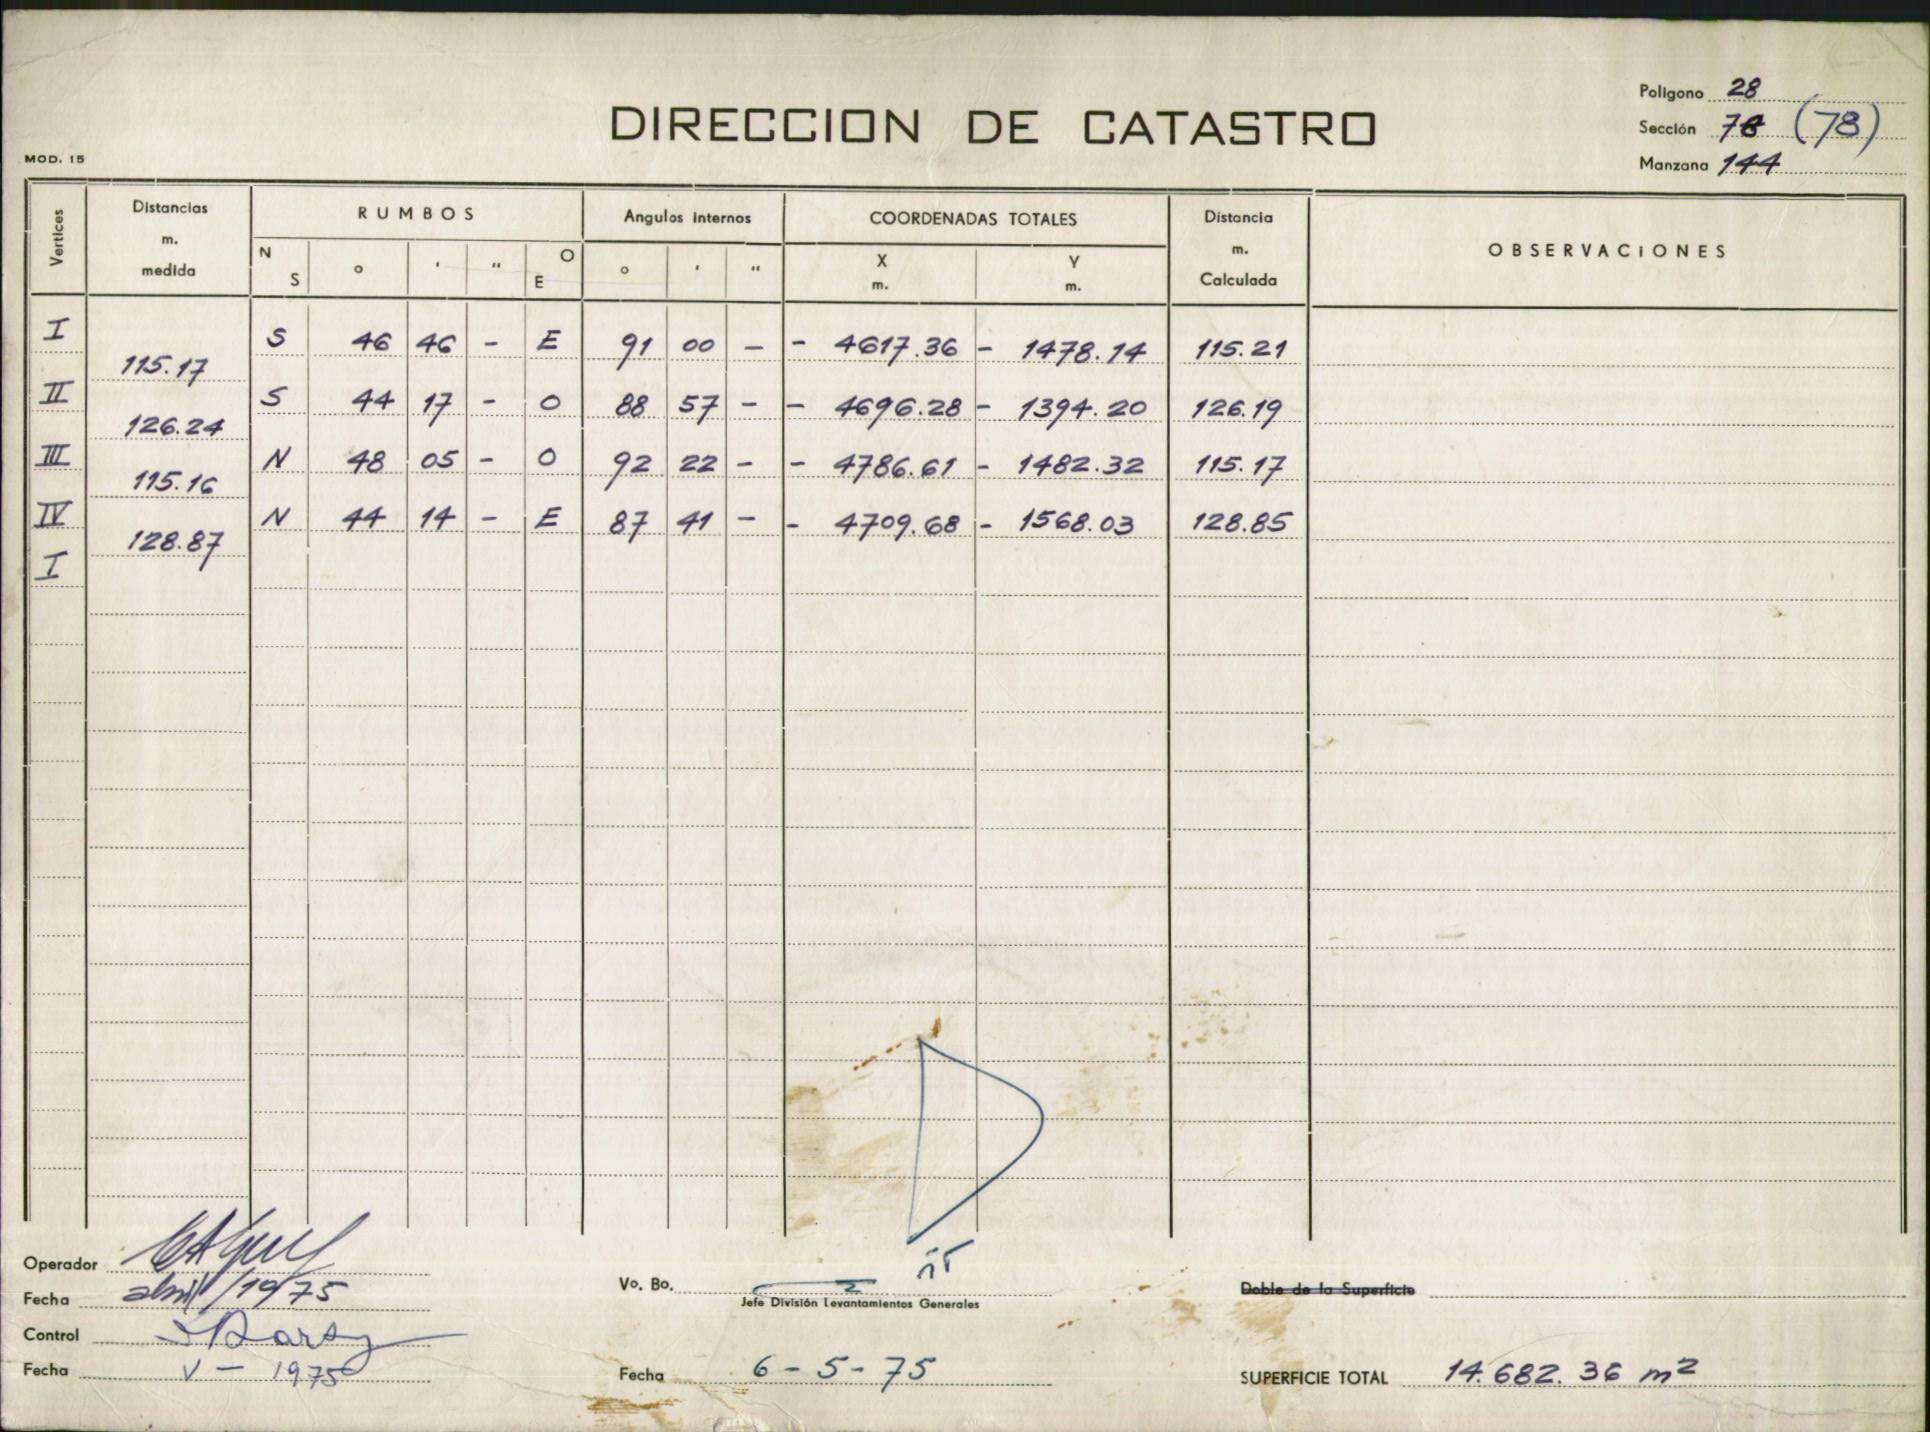 Poligono 28
DIRECCION DE CATASTRO
Sección 78 (78)
MOD. 15
Manzana 144
Vertices Distancias m. medida RUMBOS Angulos internos COORDENADAS TOTALES Distancia m. Calculada OBSERVACIONES
N S ° ' " O E ° ' " X m. Y m.
I S 46 46 - E 91 00 - - 4617.36 - 1478.14 115.21
115.17
II S 44 17 - O 88 57 - - 4696.28 - 1394.20 126.19
126.24
III N 48 05 - O 92 22 - - 4786.61 - 1482.32 115.17
115.16
IV N 44 14 - E 87 41 - - 4709.68 - 1568.03 128.85
128.87
I
Operador
Fecha abril/1975
Vo. Bo.
Jefe División Levantamientos Generales
Doble de la Superficie
Control
Fecha V - 1975
Fecha 6-5-75
SUPERFICIE TOTAL 14.682.36 m²